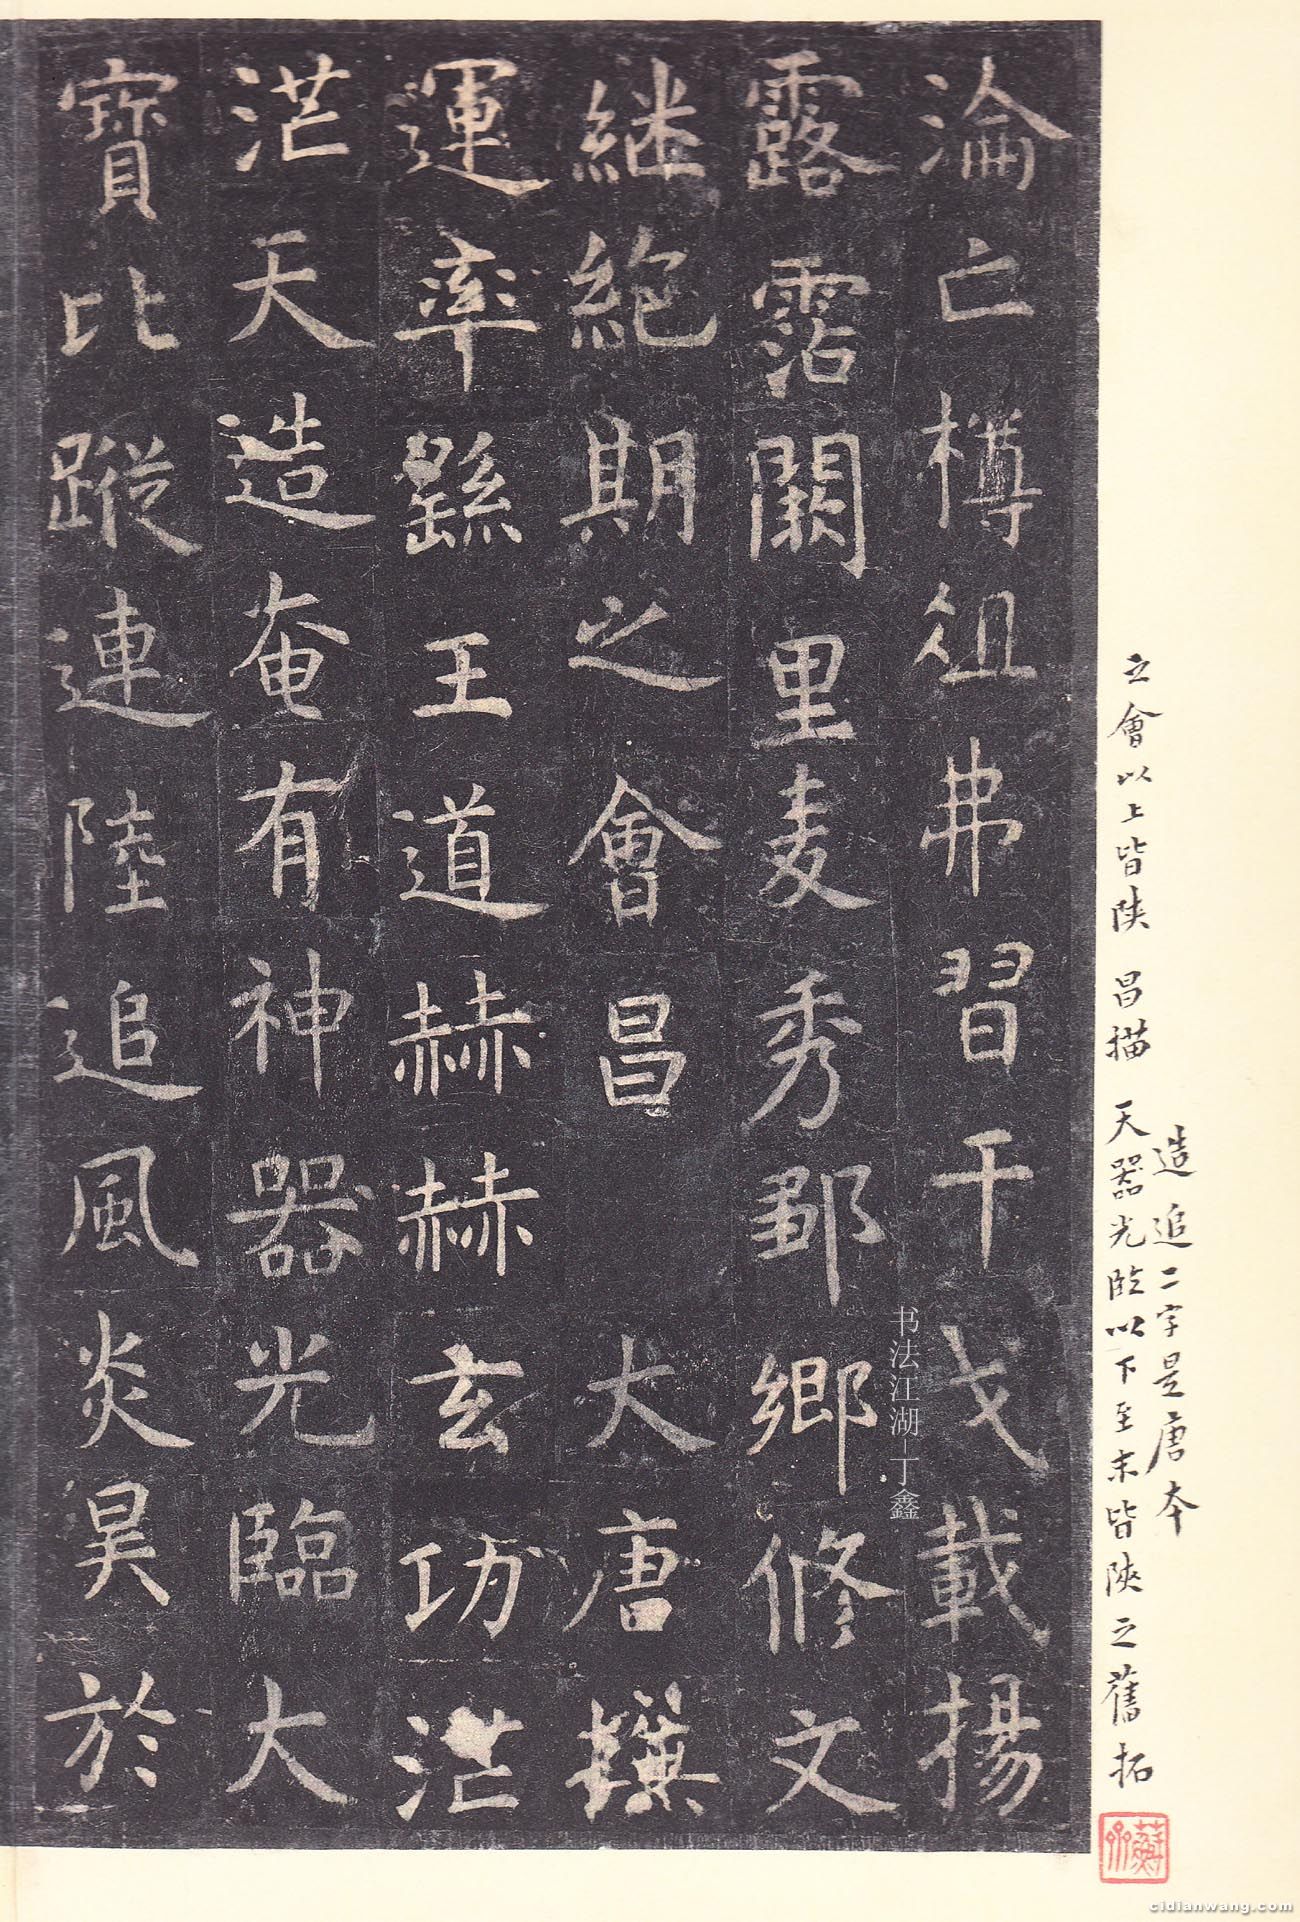 之會以上皆陝 昌描 天器光臨以下至末皆陝之舊拓
造追二字是唐本
淪亡樽俎弗習干戈載揚
露霑闕里麦秀鄒鄉修文
継絶期之會昌 大唐撰
運率繇王道赫赫玄功茫
茫天造奄有神器光臨大
寶比蹤連陸追風炎昊於
书法江湖-丁鑫
cidianwang.com